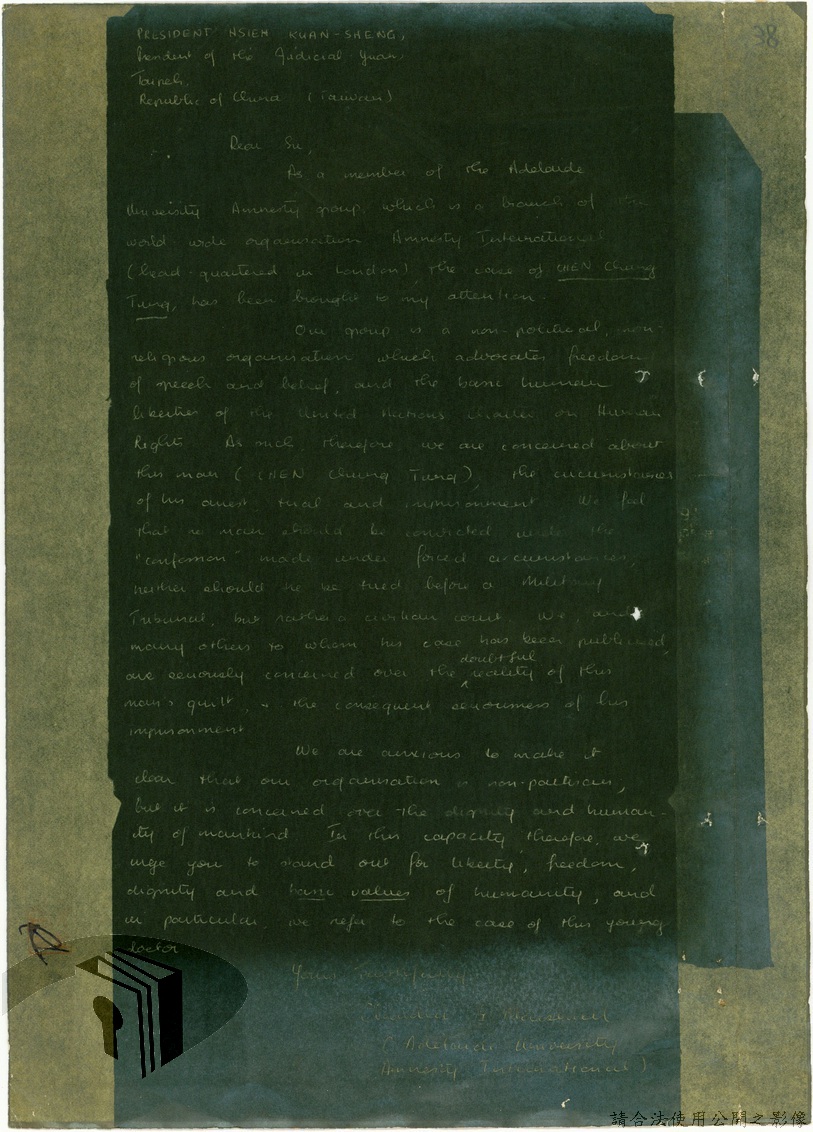 38
PRESIDENT HSIEH KUAN-SHENG,
President of the Judicial Yuan,
Taipeh,
Republic of China (Taiwan)
Dear Sir,
As a member of the Adelaide
University Amnesty group, which is a branch of the
world-wide organisation Amnesty International
(head-quartered in London), the case of CHEN Chung
Tung, has been brought to my attention.
Our group is a non-political, non-
religious organisation which advocates freedom
of speech and belief, and the basic human
liberties of the United Nations Charter on Human
Rights. As such therefore, we are concerned about
this man (CHEN Chung Tung), the circumstances
of his arrest trial and imprisonment. We feel
that no man should be convicted under the
"confession" made under forced circumstances,
neither should he be tried before a Military
Tribunal, but rather a civilian court. We, and
many others to whom his case has been publicised,
are seriously concerned over the doubtful reality of this
man's guilt, & the consequent seriousness of his
imprisonment.
We are anxious to make it
clear that our organisation is non-partisan,
but it is concerned over the dignity and human-
ity of mankind. In this capacity, therefore, we
urge you to stand out for liberty, freedom,
dignity and basic values of humanity, and
in particular, we refer to the case of this young
doctor.
Yours faithfully,
(Adelaide University
Amnesty International)
請合法使用公開之影像